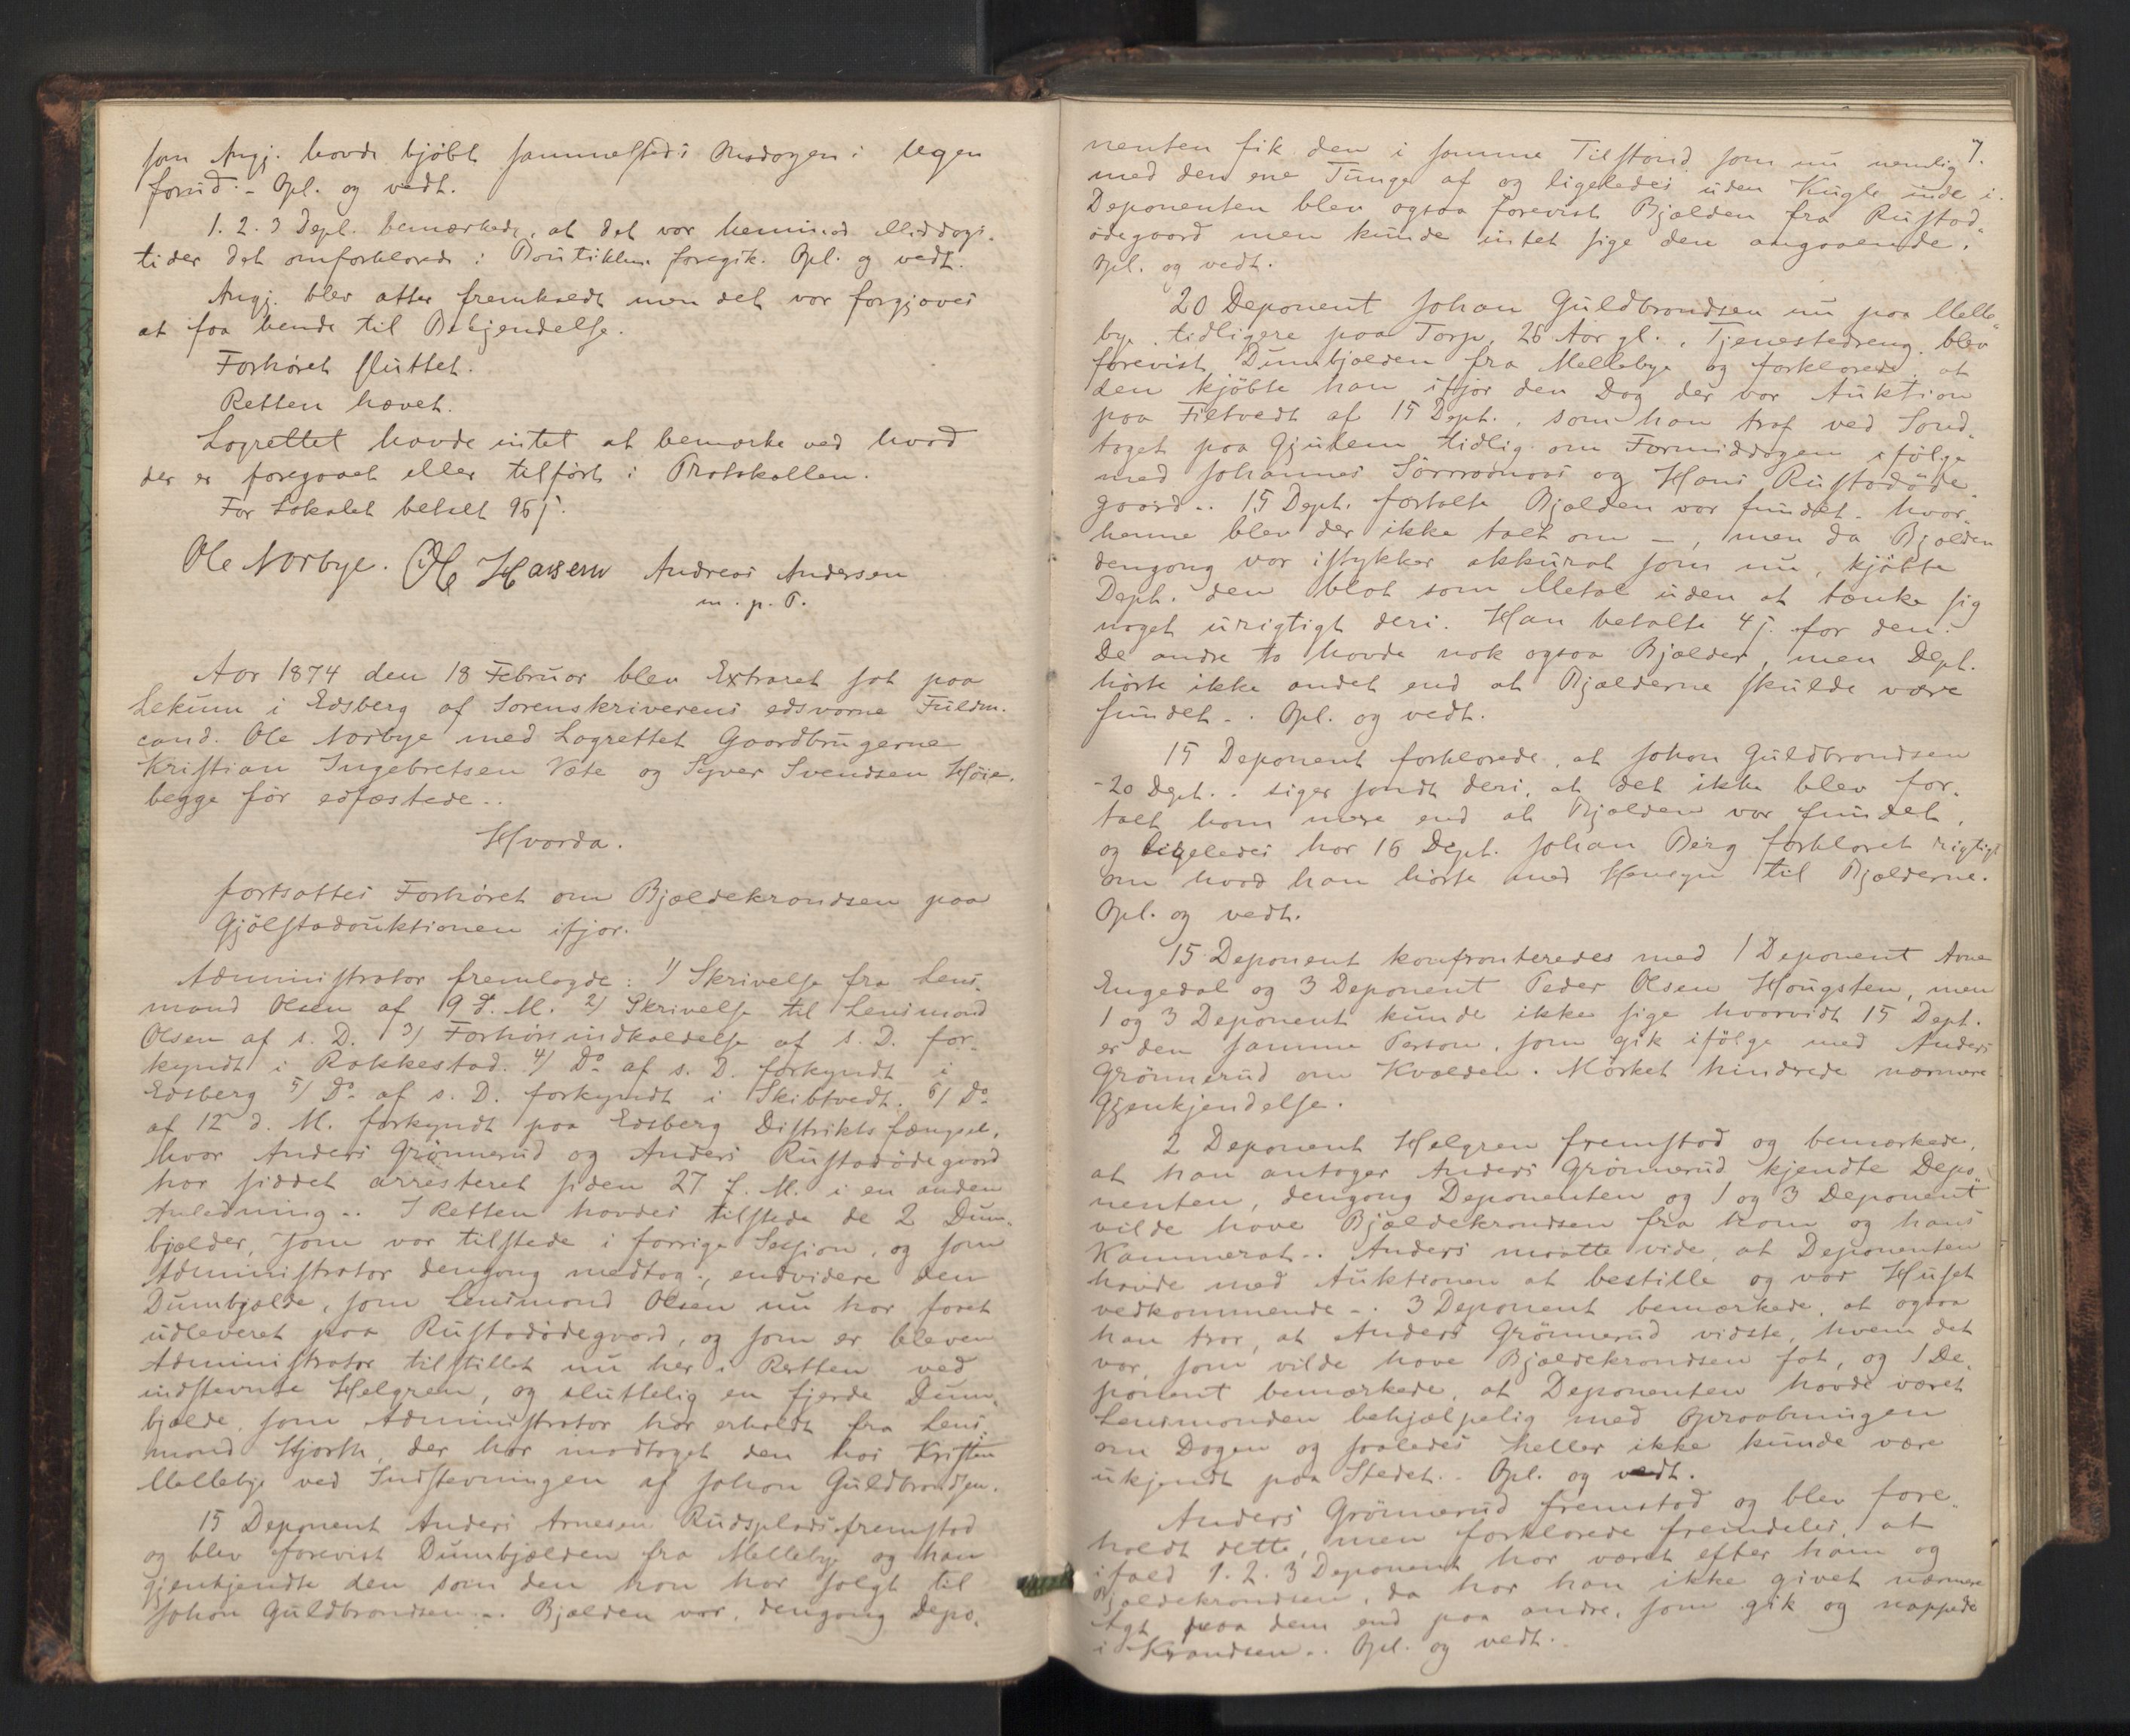 som Angj. havde kjöbt sammesteds Onsdagen i Ugen
forud.- Opl. og vedt.
1. 2. 3 Dept. bemærkede, at det var henimod Middags-
tider det omforklarede i Boutikken foregik. Opl. og vedt.
Angj. blev atter fremkaldt men det var forgjæves
at faa hende til Bekjendelse.
Forhöret sluttet.
Retten hævet.
Lagrettet havde intet at bemærke ved hvad
der er foregaaet eller tilfört i Protokollen.
For Lokalet betalt 96 s.
Ole Norbye. Ole Hansen Andreas Andersen
m. p. P.
Aar 1874 den 18 Februar blev Extraret sat paa
Lekum i Edsberg af Sorenskriverens edsvorne Fuldm.
cand. Ole Norbye med Lagrettet Gaardbrugerne
Kristian Ingebretsen Væte og Syver Svendsen Höie.
begge för edfæstede..
Hvorda.
fortsattes Forhöret om Bjældekrandsen paa
Gjölstadauktionen ifjor.
Administrator fremlagde: 1) Skrivelse fra Lens-
mand Olsen af 9 d. M. 2) Skrivelse til Lensmand
Olsen af s. D. 3) Forhörsindkaldelse af s. D. for-
kyndt i Rakkestad. 4) Do af s. D. forkyndt i
Edsberg 5) Do af s. D. forkyndt i Skibtvedt. 6) Do
af 12 d. M. forkyndt paa Edsberg Distriktsfængsel,
hvor Anders Grönnerud og Anders Rustadödegaard
har siddet arresteret siden 27 f. M. i en anden
Anledning.. I Retten havdes tilstede de 2 Dum-
bjælder, som var tilstede i forrige Session, og som
Administrator dengang medtog., endvidere den
Dumbjælde, som Lensmand Olsen nu har faaet
udleveret paa Rustadödegaard, og som er bleven
Administrator tilstillet nu her i Retten ved
indstevnte Helgren, og sluttelig en fjerde Dum-
bjælde, som Administrator har erholdt fra Lens-
mand Hjorth, der har modtaget den hos Kristen
Mellebye ved Indstevningen af Johan Guldbrandsen.
15 Deponent Anders Arnesen Rudsplads fremstod
og blev forevist Dumbjælden fra Mellebye og han
gjenkjendte den som den han har solgt til
Johan Guldbrandsen... Bjælden var, dengang Depo-
7.
nenten fik den i samme Tilstand som nu nemlig
med den ene Tunge af og ligeledes uden Kugle inde i.
Deponenten blev ogsaa forevist Bjælden fra Rustad-
ödegaard men kunde intet sige den angaaende.
Opl. og vedt.
20 Deponent Johan Guldbrandsen nu paa Melle-
bye, tidligere paa Torp, 26 Aar gl., Tjenestedreng, blev
forevist Dumbjælden fra Mellebye og forklarede, at
den kjöbte han ifjor den Dag der var Auktion
paa Filtvedt af 15 Dept., som han traf ved Sand-
taget paa Gjulem tidlig om Formiddagen ifölge
med Johannes Sörrodnæs og Hans Rustadöde-
gaard.. 15 Dept. fortalte Bjælden var fundet - hvor-
henne blev der ikke talt om -, men da Bjælden
dengang var istykker akkurat som nu, kjöbte
Dept. den blot som Metal uden at tænke sig
noget urigtigt deri. Han betalte 4 s. for den.
De andre to havde nok ogsaa Bjælder, men Dept.
hörte ikke andet end at Bjælderne skulde være
fundet... Opl. og vedt.
15 Deponent forklarede, at Johan Guldbrandsen
- 20 Dept. - siger sandt deri, at det ikke blev for-
talt ham mere end at Bjælden var fundet,
og ligeledes har 16 Dept. Johan Berg forklaret rigtigt
om hvad han hörte med Hensyn til Bjælderne.
Opl. og vedt.
15 Deponent konfronteredes med 1 Deponent Arne
Engedal og 3 Deponent Peder Olsen Hougsten, men
1 og 3 Deponent kunde ikke sige hvorvidt 15 Dept.
er den samme Person, som gik ifölge med Anders
Grönnerud om Kvælden. Mörket hindrede nærmere
Gjenkjendelse.
2 Deponent Helgren fremstod og bemærkede,
at han antager Anders Grönnerud kjendte Depo-
nenten, dengang Deponenten og 1 og 3 Deponent
vilde have Bjældekrandsen fra ham og hans
Kammerat.. Anders maatte vide, at Deponenten
havde med Auktionen at bestille og var Huset
vedkommende -. 3 Deponent bemærkede, at ogsaa
han tror, at Anders Grönnerud vidste, hvem det
var, som vilde have Bjældekrandsen fat, og 1 De-
ponent bemærkede, at Deponenten havde været
Lensmanden behjælpelig med Opraabningen
om Dagen og saaledes heller ikke kunde være
ukjendt paa Stedet.. Opl. og vedt.
Anders Grönnerud fremstod og blev fore-
holdt dette, men forklarede fremdeles, at
ifald 1. 2. 3 Deponent har været efter ham og
Bjældekrandsen, da har han ikke givet nærmere
Agt paa dem end paa andre, som gik og nappede
i Krandsen.. Opl. og vedt..